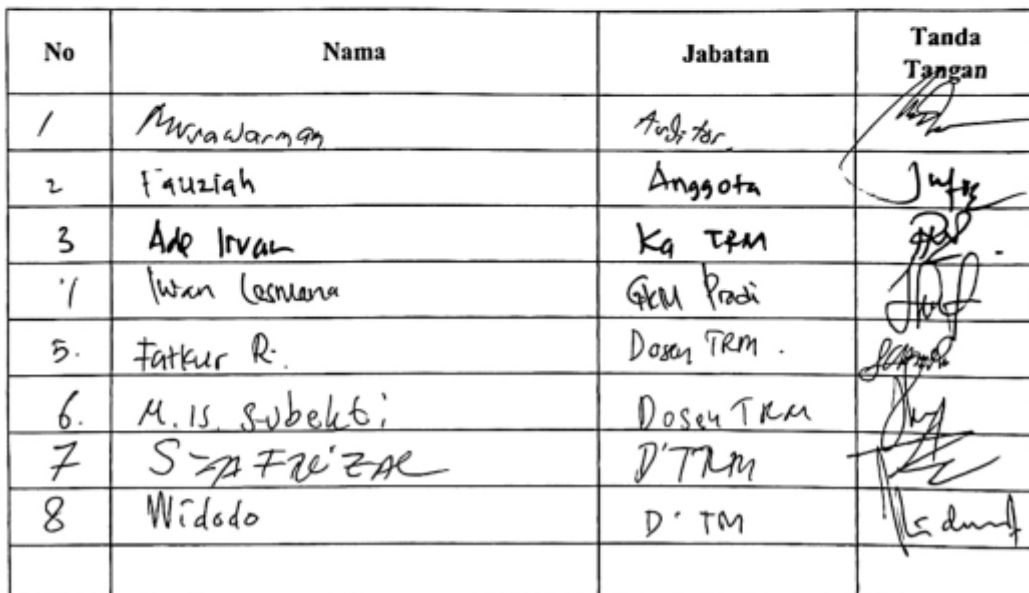 No Nama Jabatan Tanda Tangan
1 Munawarman Auditor
2 Fauziah Anggota
3 Ade Irvan Ka TRM
4 Iwan Lesmana GKM Prodi
5. Fatkur R. Dosen TRM.
6. M. Is. Subekti Dosen TRM
7 SYAFRIZAL D' TRM
8 Widodo D' TM